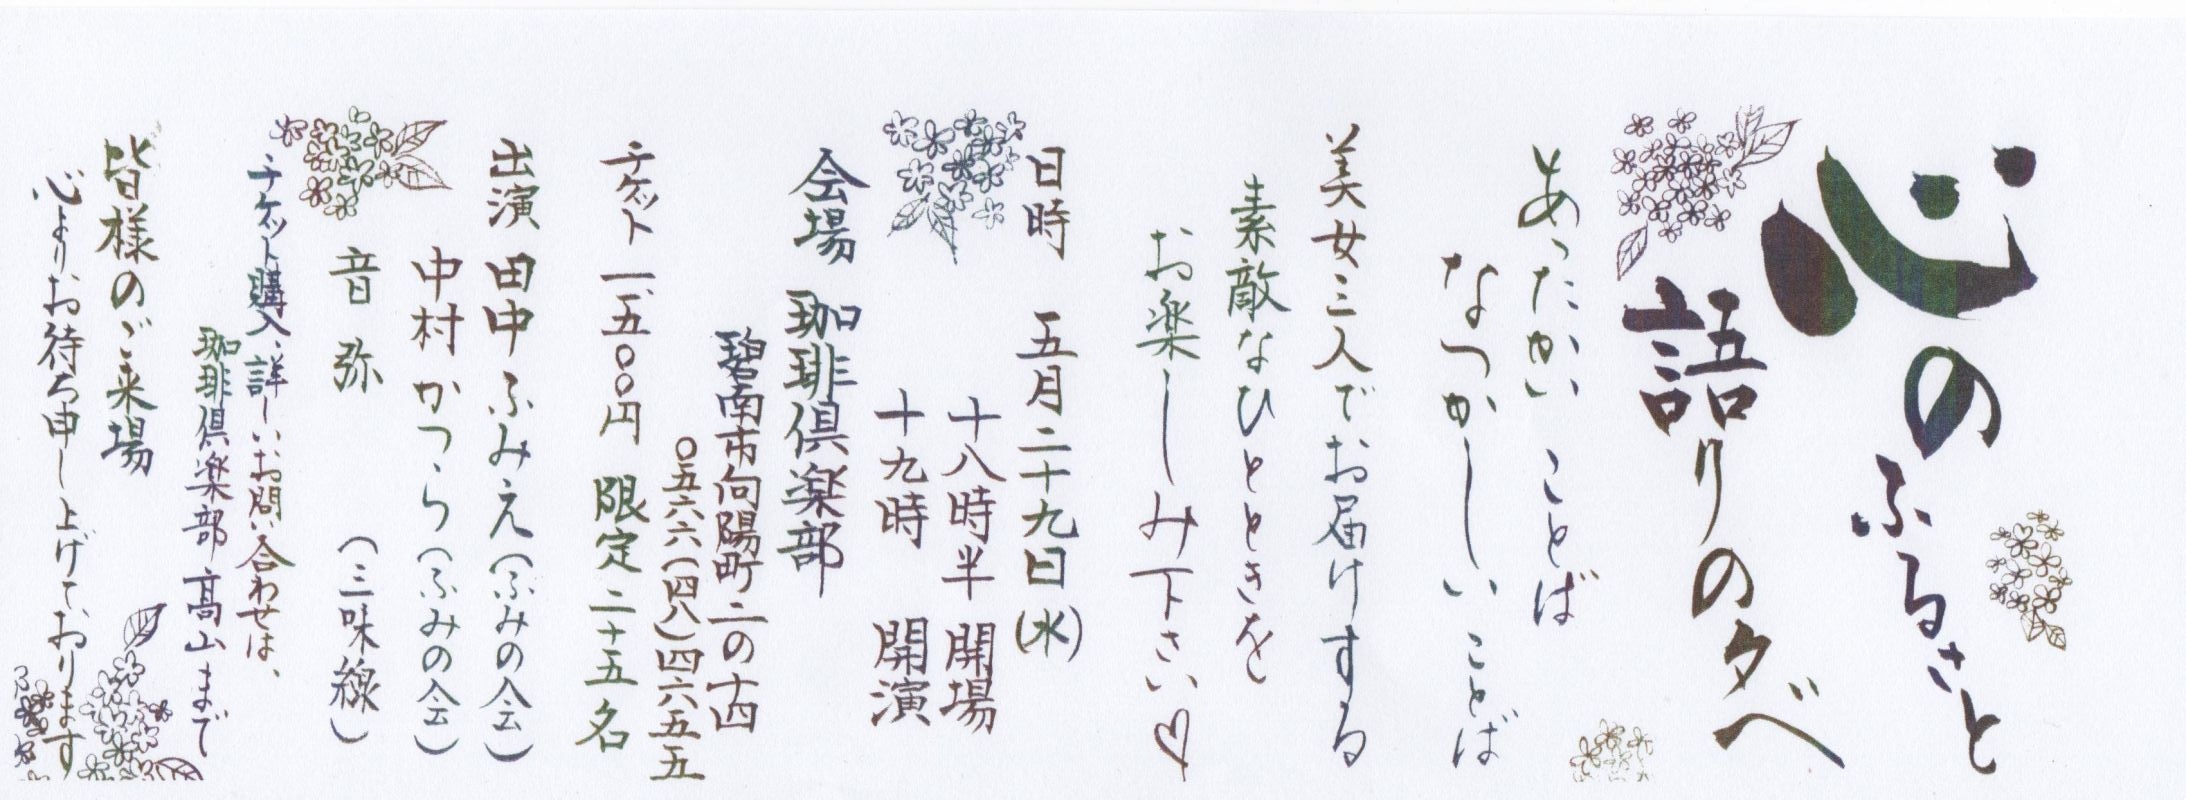 心のふるさと
語りの夕べ
あったかい ことば
なつかしい ことば
美女三人でお届けする
素敵なひとときを
お楽しみ下さい♡
日時 五月二十九日(水)
十八時半 開場
十九時 開演
会場 珈琲倶楽部
碧南市向陽町二の十四
〇五六六(四八)四六五五
チケット 一、五〇〇円 限定 二十五名
出演 田中ふみえ(ふみの会)
中村かつら(ふみの会)
音弥 (三味線)
チケット購入、詳しいお問い合わせは、
珈琲倶楽部 高山まで
皆様のご来場
心よりお待ち申し上げております